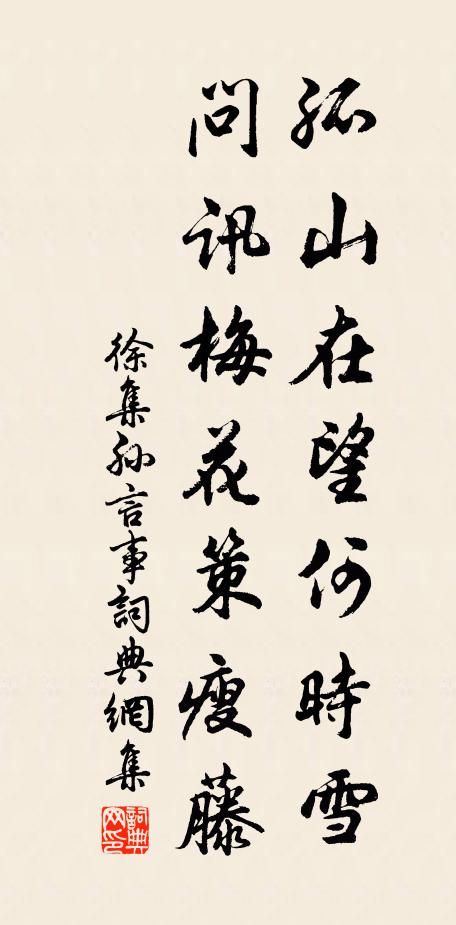 孤山在望何時雪
問訊梅花策瘦藤
徐集孙言事詞典網集
詞典網印